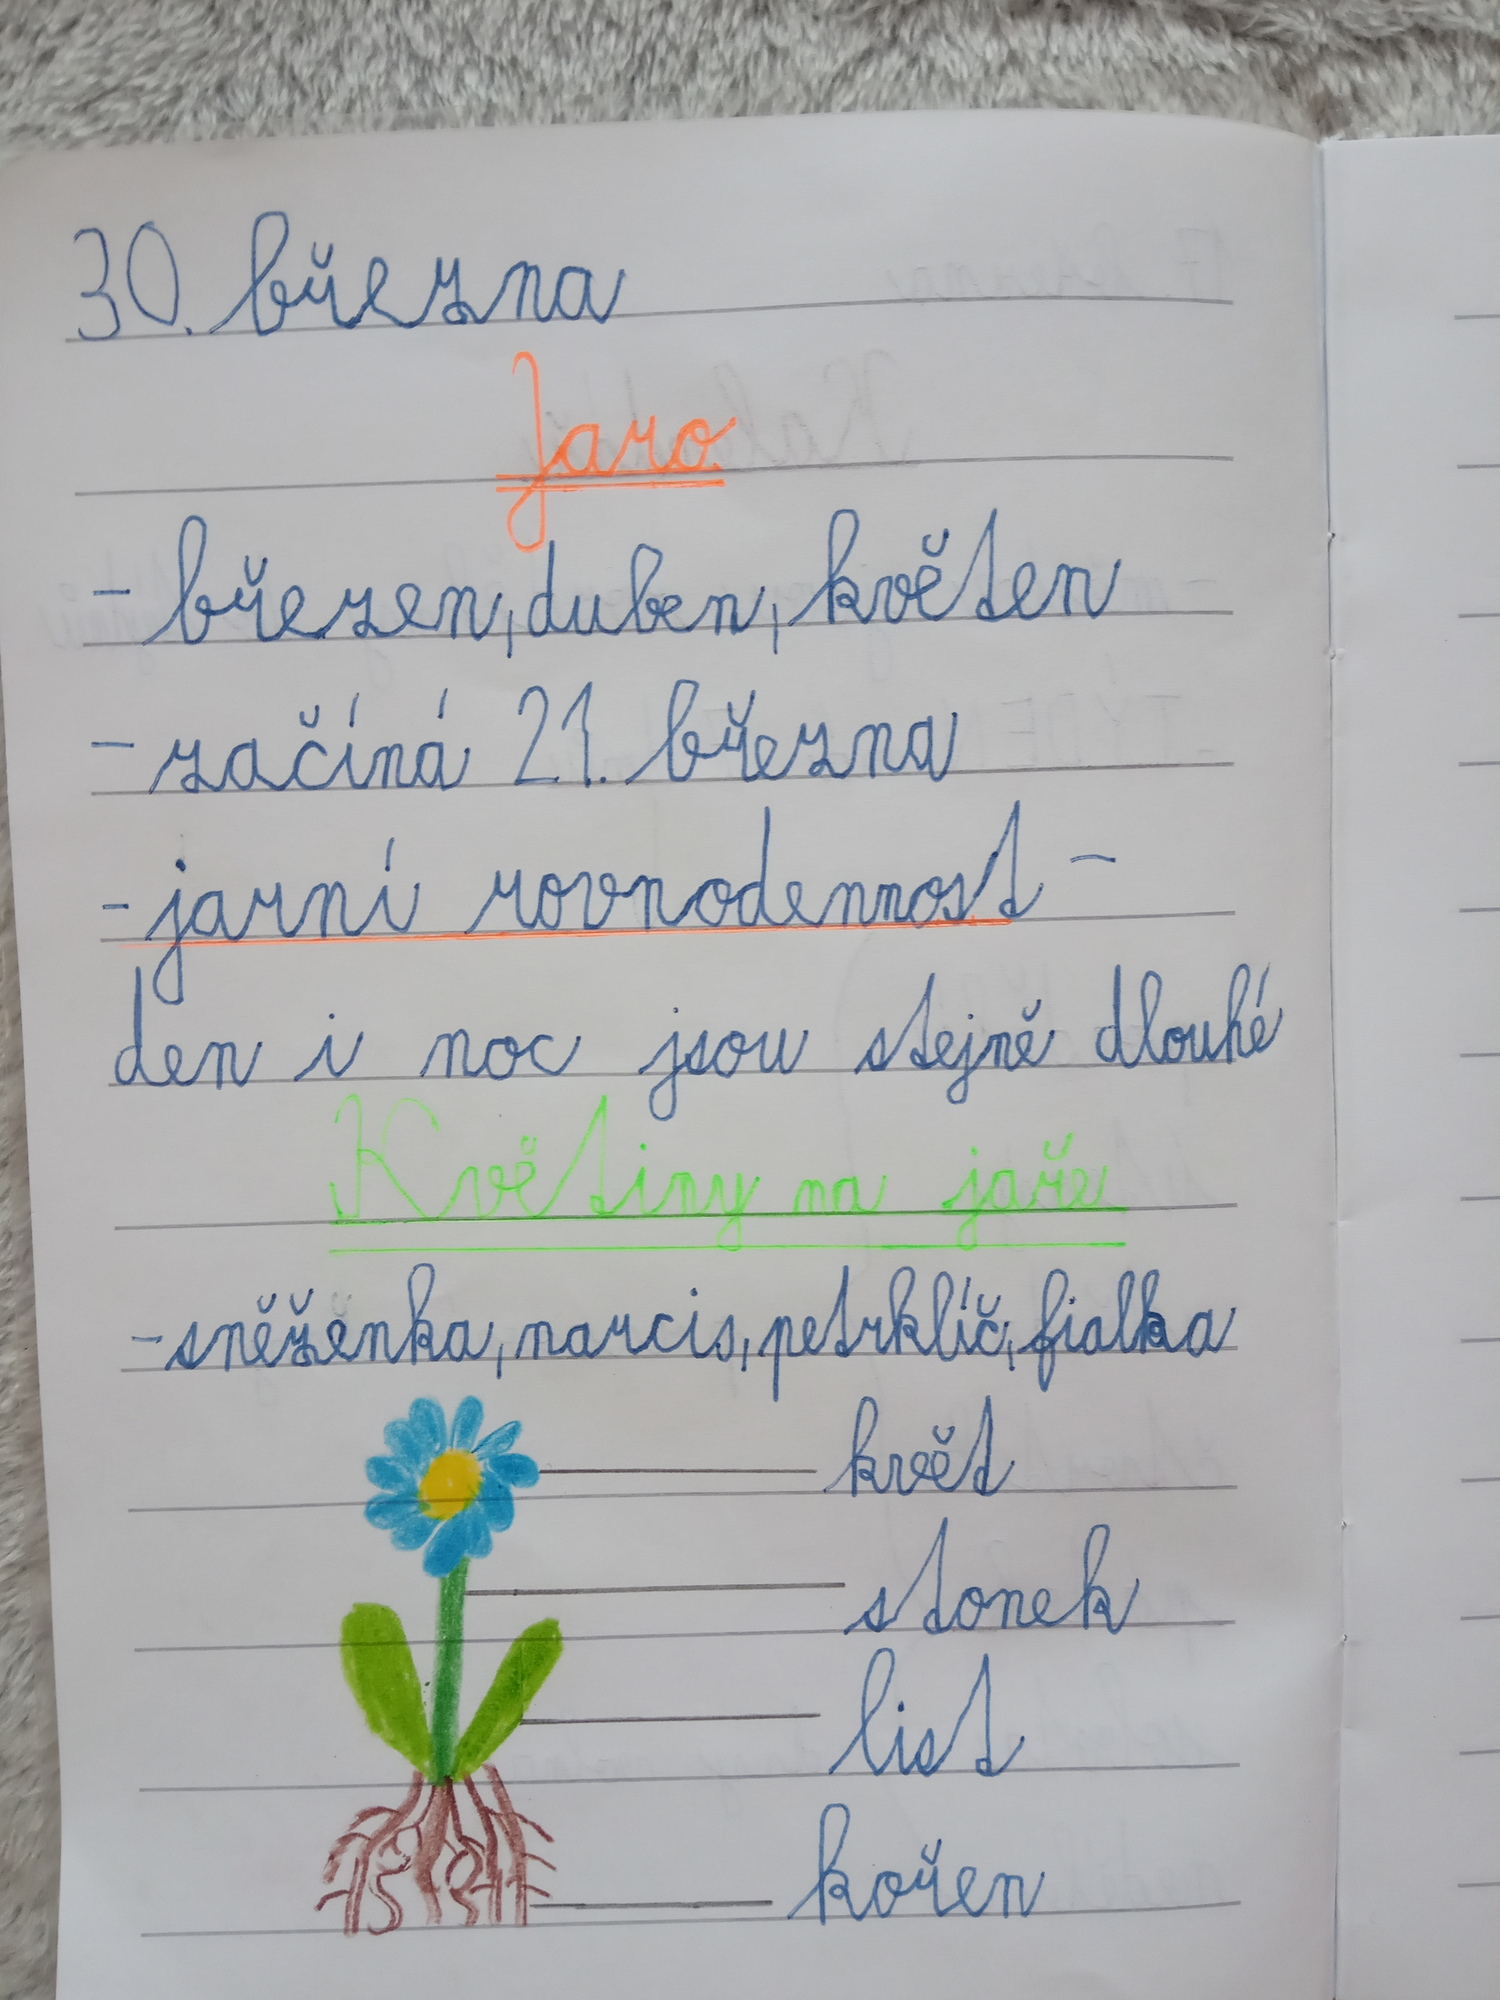 30. března
Jaro
- březen, duben, květen
- začíná 21. března
- jarní rovnodennost -
den i noc jsou stejně dlouhé
Květiny na jaře
- sněženka, narcis, petrklíč, fialka
květ
stonek
list
kořen